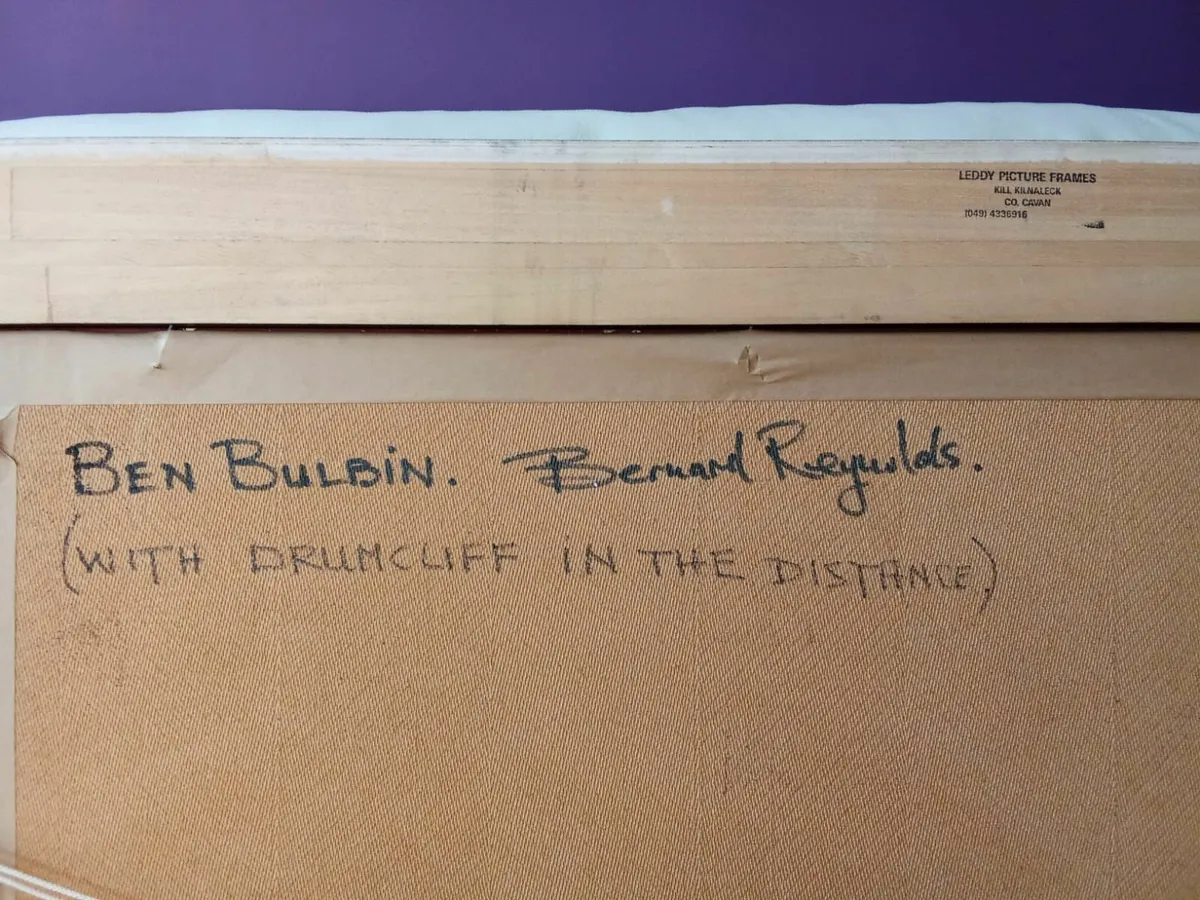 LEDDY PICTURE FRAMES
KILL KILNALECK
CO. CAVAN
(049) 4336916
BEN BULBIN. Bernard Reynolds.
(WITH DRUMCLIFF IN THE DISTANCE)